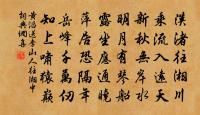 漢渚往湘川
乘流入遠天
新秋無岸水
明月有琴船
露坐應通曉
萍居恐隔年
岳峰千萬仞
知上嘯猿巔
黄滔送李山人往湘中
詞典網集